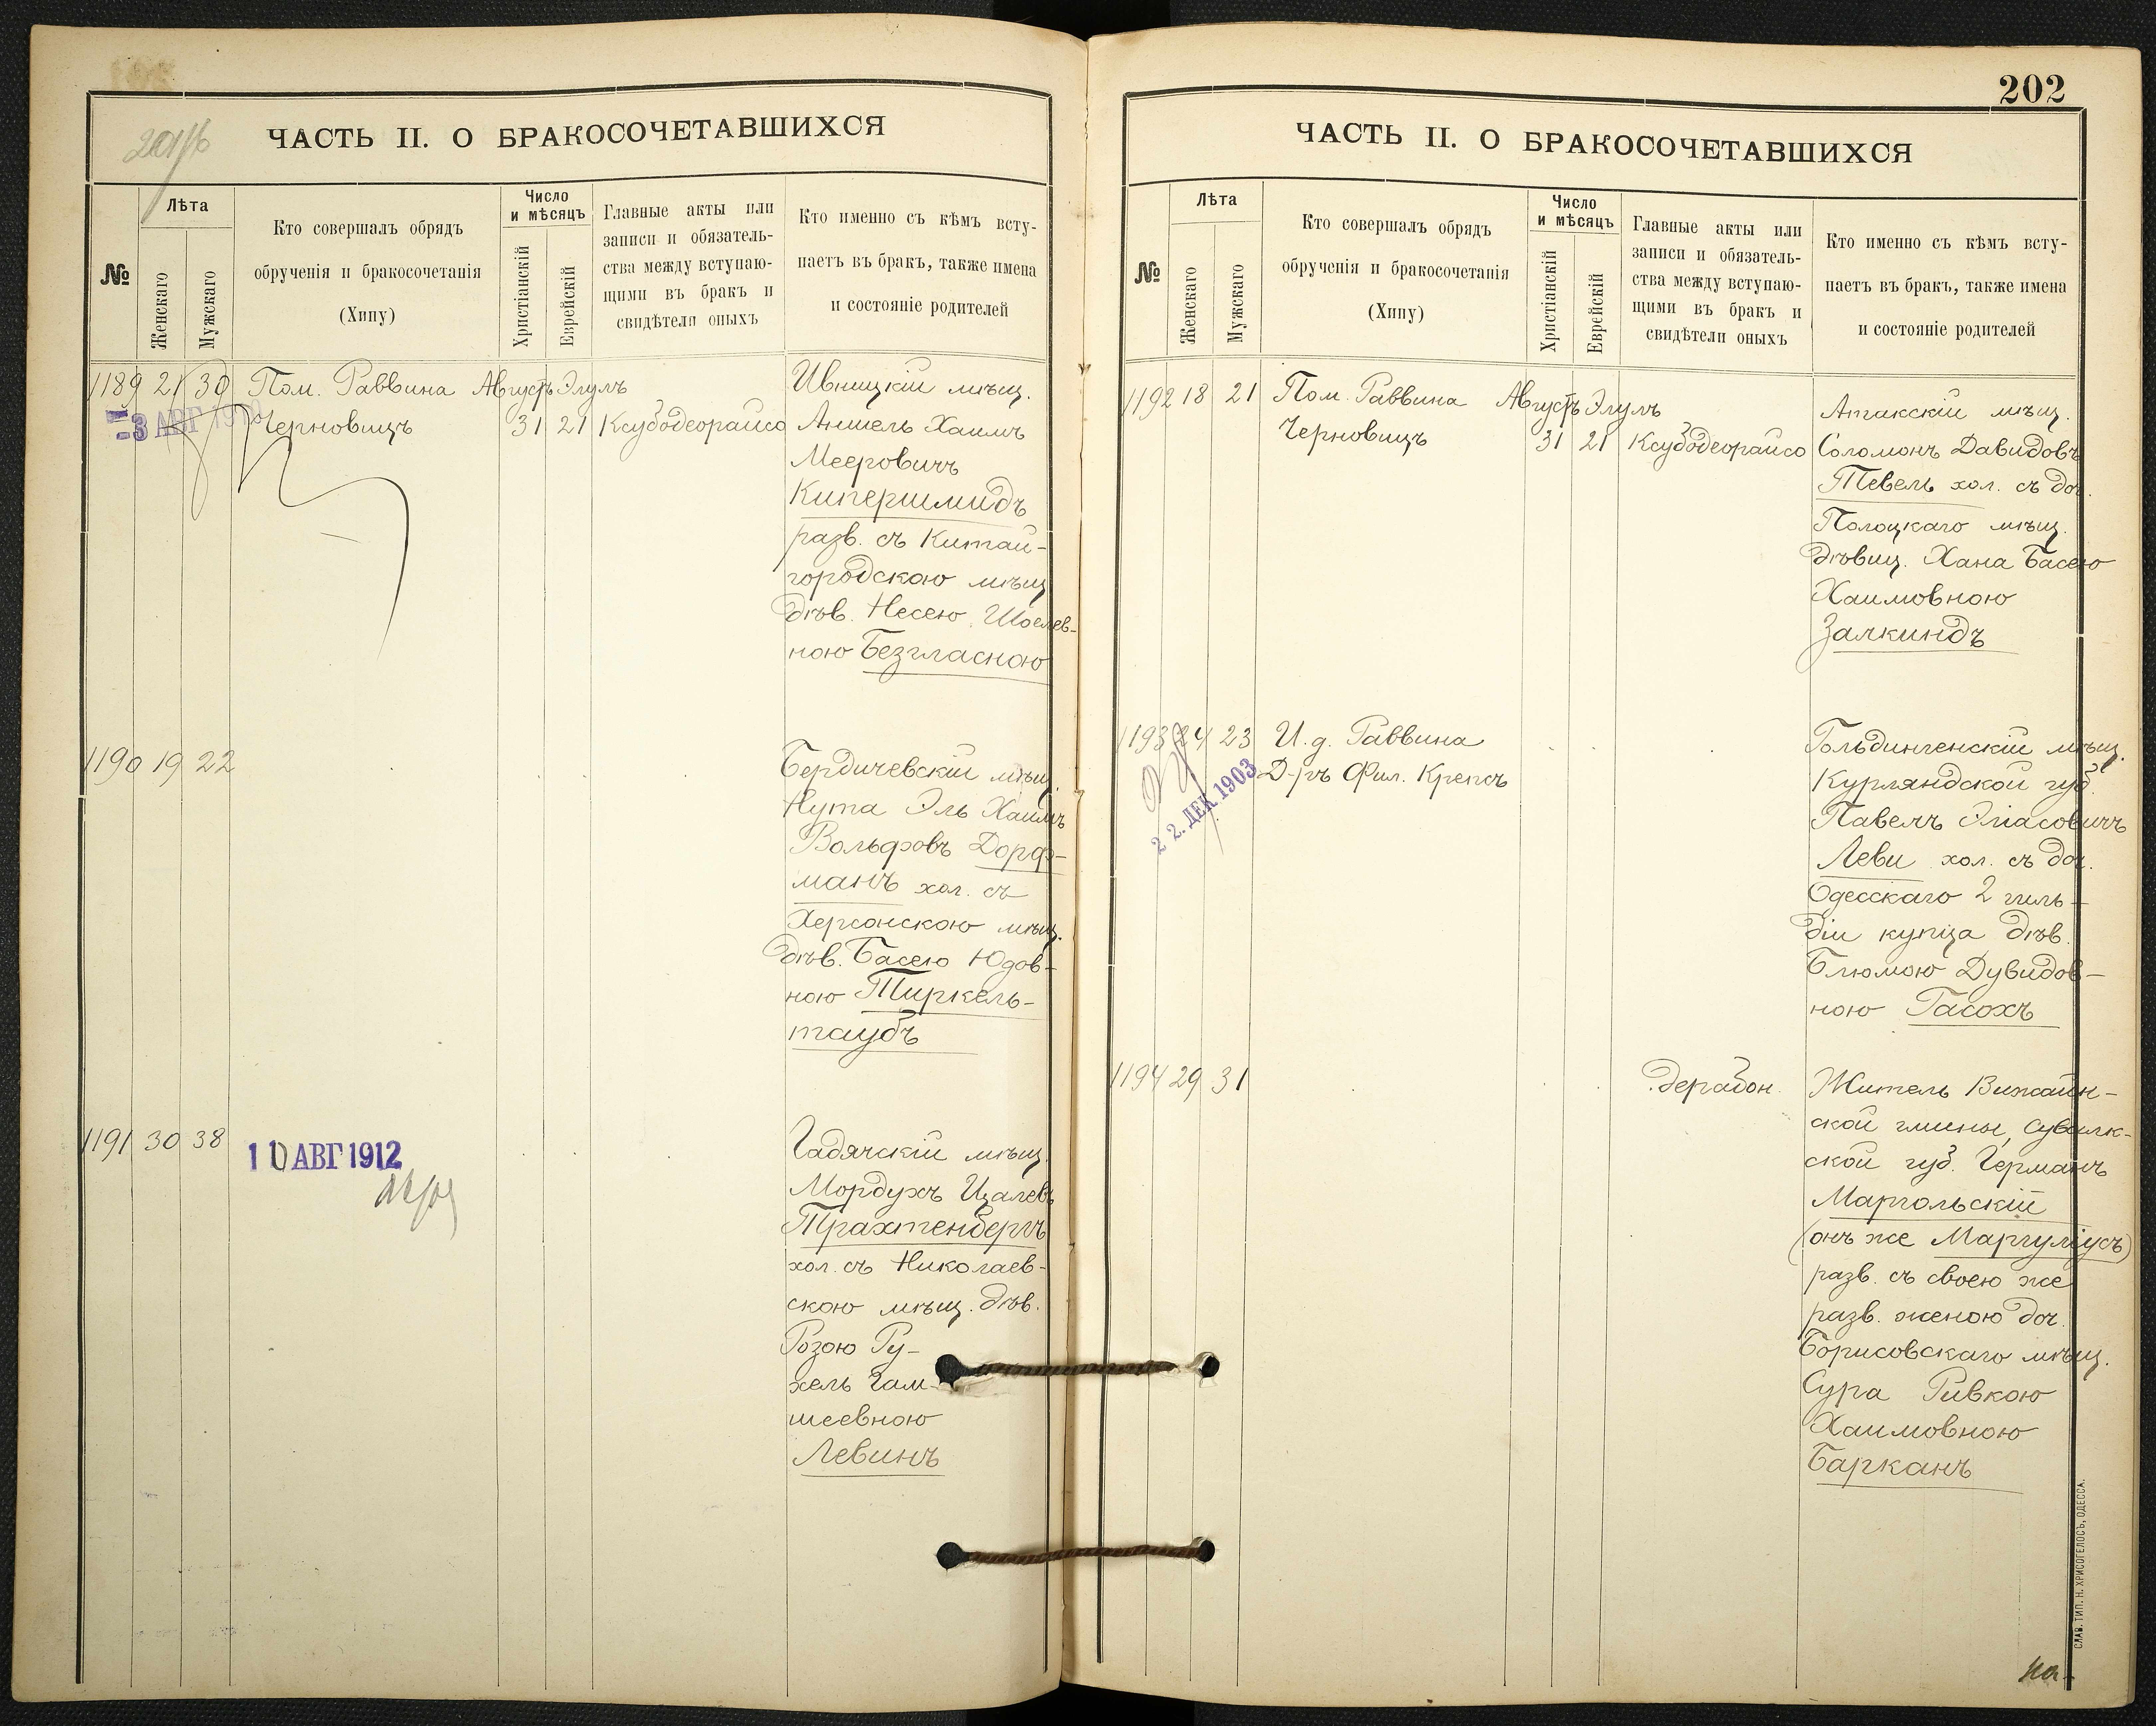 201/б
ЧАСТЬ II. О БРАКОСОЧЕТАВШИХСЯ
№
Лѣта
Женскаго
Мужскаго
Кто совершалъ обрядъ
обрученія и бракосочетанія
(Хипу)
Число
и мѣсяцъ
Христіанскій
Еврейскій
Главные акты или
записи и обязатель-
ства между вступаю-
щими въ бракъ и
свидѣтели оныхъ
Кто именно съ кѣмъ всту-
паетъ въ бракъ, также имена
и состояніе родителей
1189 21 30 Пом. Раввина Августъ Элулъ
Черновицъ 31 21 Ксубодеорайсо
-3 АВГ
Ивницкій мѣщ.
Аншель Хаимъ
Мееровичъ
Кипершмидъ
разв. съ Китай-
городскою мѣщ.
дѣв. Несею Шоелев-
ною Безгласною
1190 19 22
Бердичевскій мѣщ.
Нута Эль Хаимъ
Вольфовъ Дорф-
манъ хол. съ
Херсонскою мѣщ.
дѣв. Басею Юдов-
ною Тиркель-
таубъ
1191 30 38
10 АВГ 1912
Гадячскій мѣщ.
Мордухъ Цалевъ
Трахтенбергъ
хол. съ Николаев-
скою мѣщ. дѣв.
Розою Ру-
хель Гам-
шеевною
Левинъ
202
ЧАСТЬ II. О БРАКОСОЧЕТАВШИХСЯ
№
Лѣта
Женскаго
Мужскаго
Кто совершалъ обрядъ
обрученія и бракосочетанія
(Хипу)
Число
и мѣсяцъ
Христіанскій
Еврейскій
Главные акты или
записи и обязатель-
ства между вступаю-
щими въ бракъ и
свидѣтели оныхъ
Кто именно съ кѣмъ всту-
паетъ въ бракъ, также имена
и состояніе родителей
1192 18 21 Пом. Раввина Августъ Элулъ
Черновицъ 31 21 Ксубодеорайсо
Атакскій мѣщ.
Соломонъ Давидовъ
Тевель хол. съ доч.
Полоцкаго мѣщ.
дѣвиц. Хана Басею
Хаимовною
Залкиндъ
1193 24 23 И. д. Раввина
Д-ръ Фил. Крепсъ
22. ДЕК 1903
Гольдингенскій мѣщ.
Курляндской губ.
Павелъ Эліасовичъ
Леви хол. съ доч.
Одесскаго 2 гиль-
діи купца дѣв.
Блюмою Дувидов-
ною Гасохъ
1194 29 31 дерабон.
Житель Вижайн-
ской гмины, Сувалк-
ской губ. Германъ
Маргольскій
(онъ же Маргуліусъ)
разв. съ своею же
разв. женою доч.
Борисовскаго мѣщ.
Сура Ривкою
Хаимовною
Барканъ
СЛАВ. ТИП. Н. ХРИСОГЕЛОСЪ, ОДЕССА.
на-